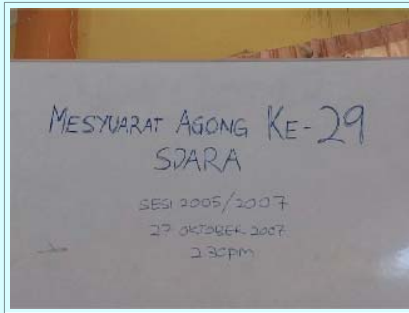 MESYUARAT AGONG KE-29
SDARA
SESI 2005/2007
27 OKTOBER 2007
2.30PM